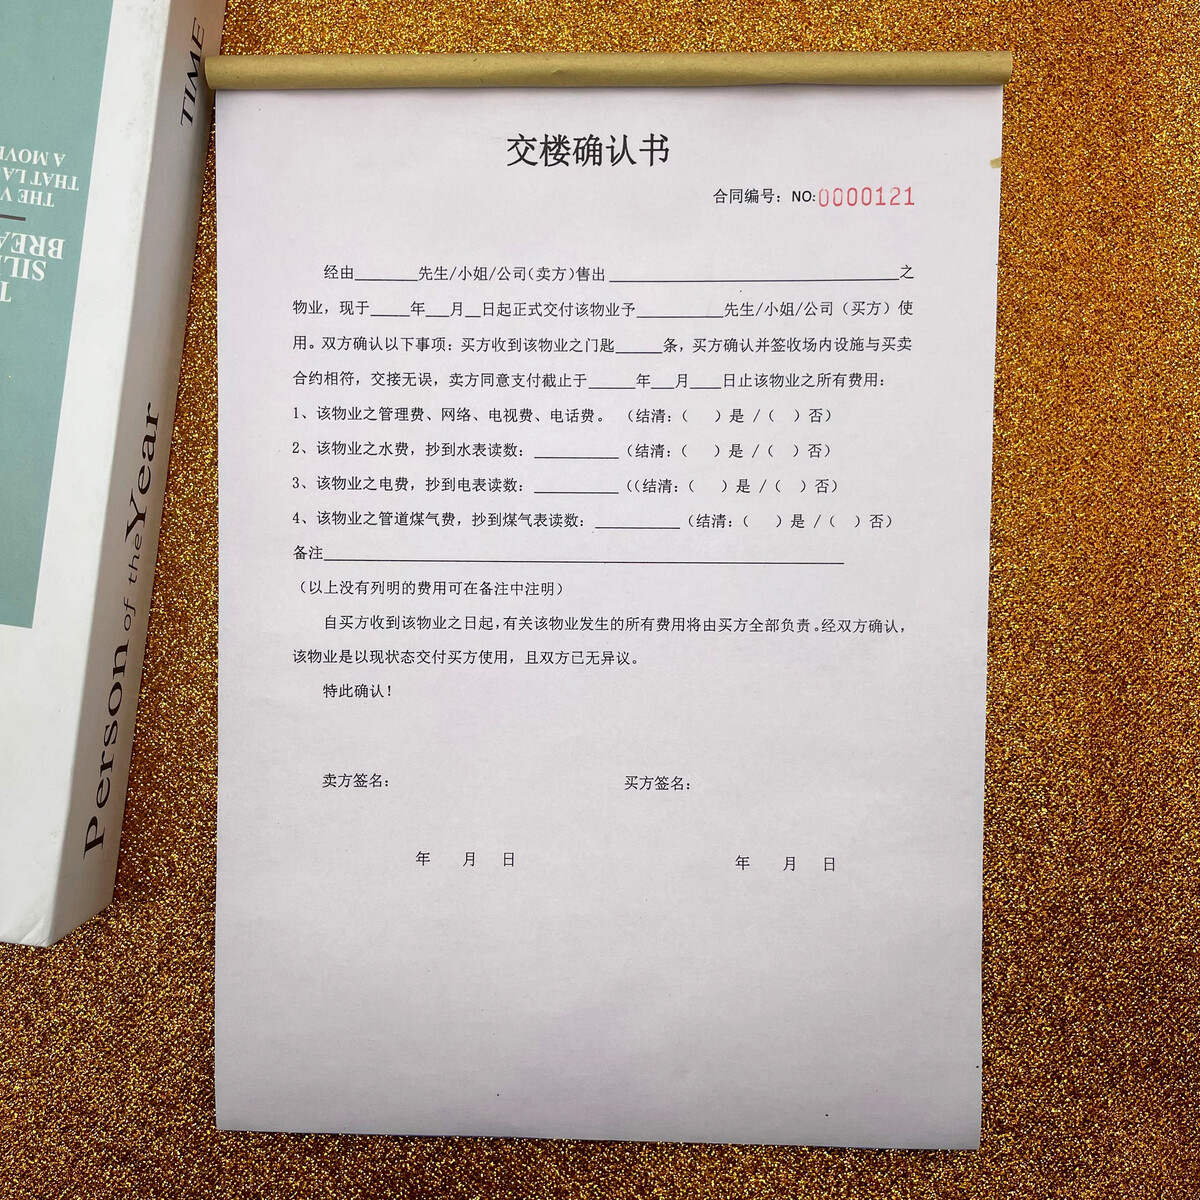 交楼确认书
合同编号：NO:0000121
经由________先生/小姐/公司(卖方)售出____________________________________之
物业，现于_____年___月__日起正式交付该物业予___________先生/小姐/公司（买方）使
用。双方确认以下事项：买方收到该物业之门匙______条，买方确认并签收场内设施与买卖
合约相符，交接无误，卖方同意支付截止于______年___月____日止该物业之所有费用：
1、该物业之管理费、网络、电视费、电话费。（结清：（　）是 /（　）否）
2、该物业之水费，抄到水表读数：___________（结清：（　）是 /（　）否）
3、该物业之电费，抄到电表读数：___________（（结清：（　）是 /（　）否）
4、该物业之管道煤气费，抄到煤气表读数：___________（结清：（　）是 /（　）否）
备注____________________________________________________________________
（以上没有列明的费用可在备注中注明）
自买方收到该物业之日起，有关该物业发生的所有费用将由买方全部负责。经双方确认，
该物业是以现状态交付买方使用，且双方已无异议。
特此确认！
卖方签名：
买方签名：
年　月　日
年　月　日
TIME
Person of the Year
A MOV
THAT LA
THE V
BREA
SIL
T